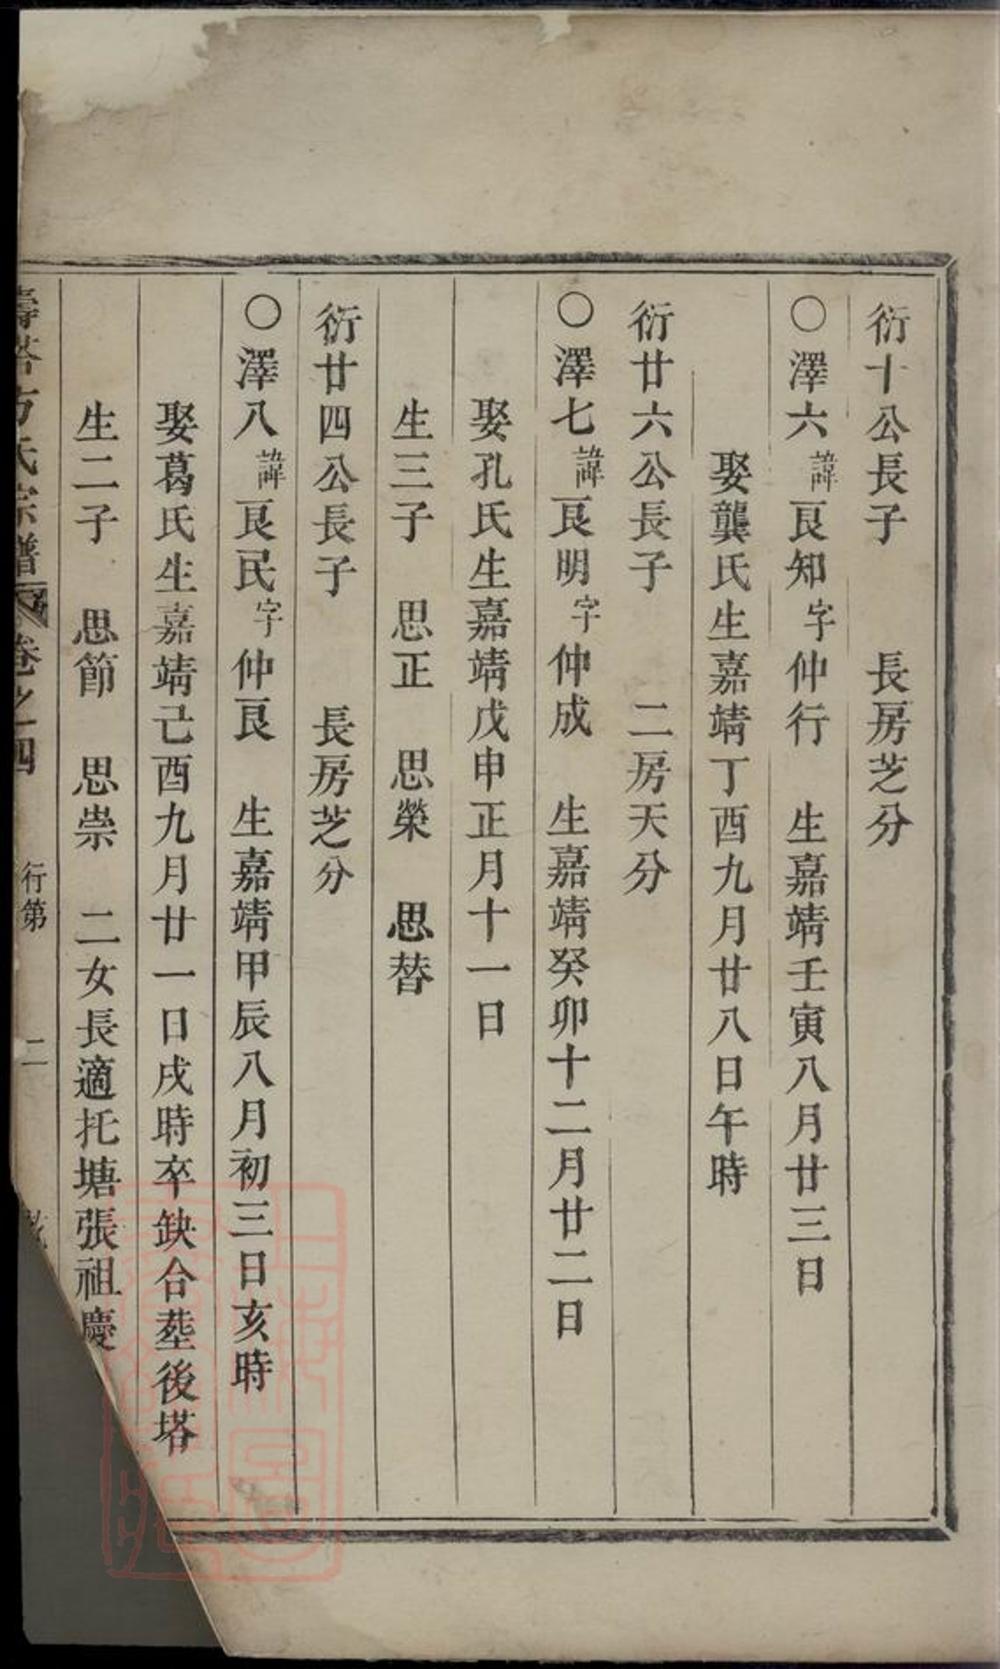 衍十公長子　長房芝分
○澤六諱良知字仲行　生嘉靖壬寅八月廿三日
娶龔氏生嘉靖丁酉九月廿八日午時
衍廿六公長子　二房天分
○澤七諱良明字仲成　生嘉靖癸卯十二月廿二日
娶孔氏生嘉靖戊申正月十一日
生三子　思正　思榮　思替
衍廿四公長子　長房芝分
○澤八諱良民字仲良　生嘉靖甲辰八月初三日亥時
娶葛氏生嘉靖己酉九月廿一日戌時卒缺合塟後塔
生二子　思節　思崇　二女長適托塘張祖慶
塔方氏宗譜　卷之四　行第　二